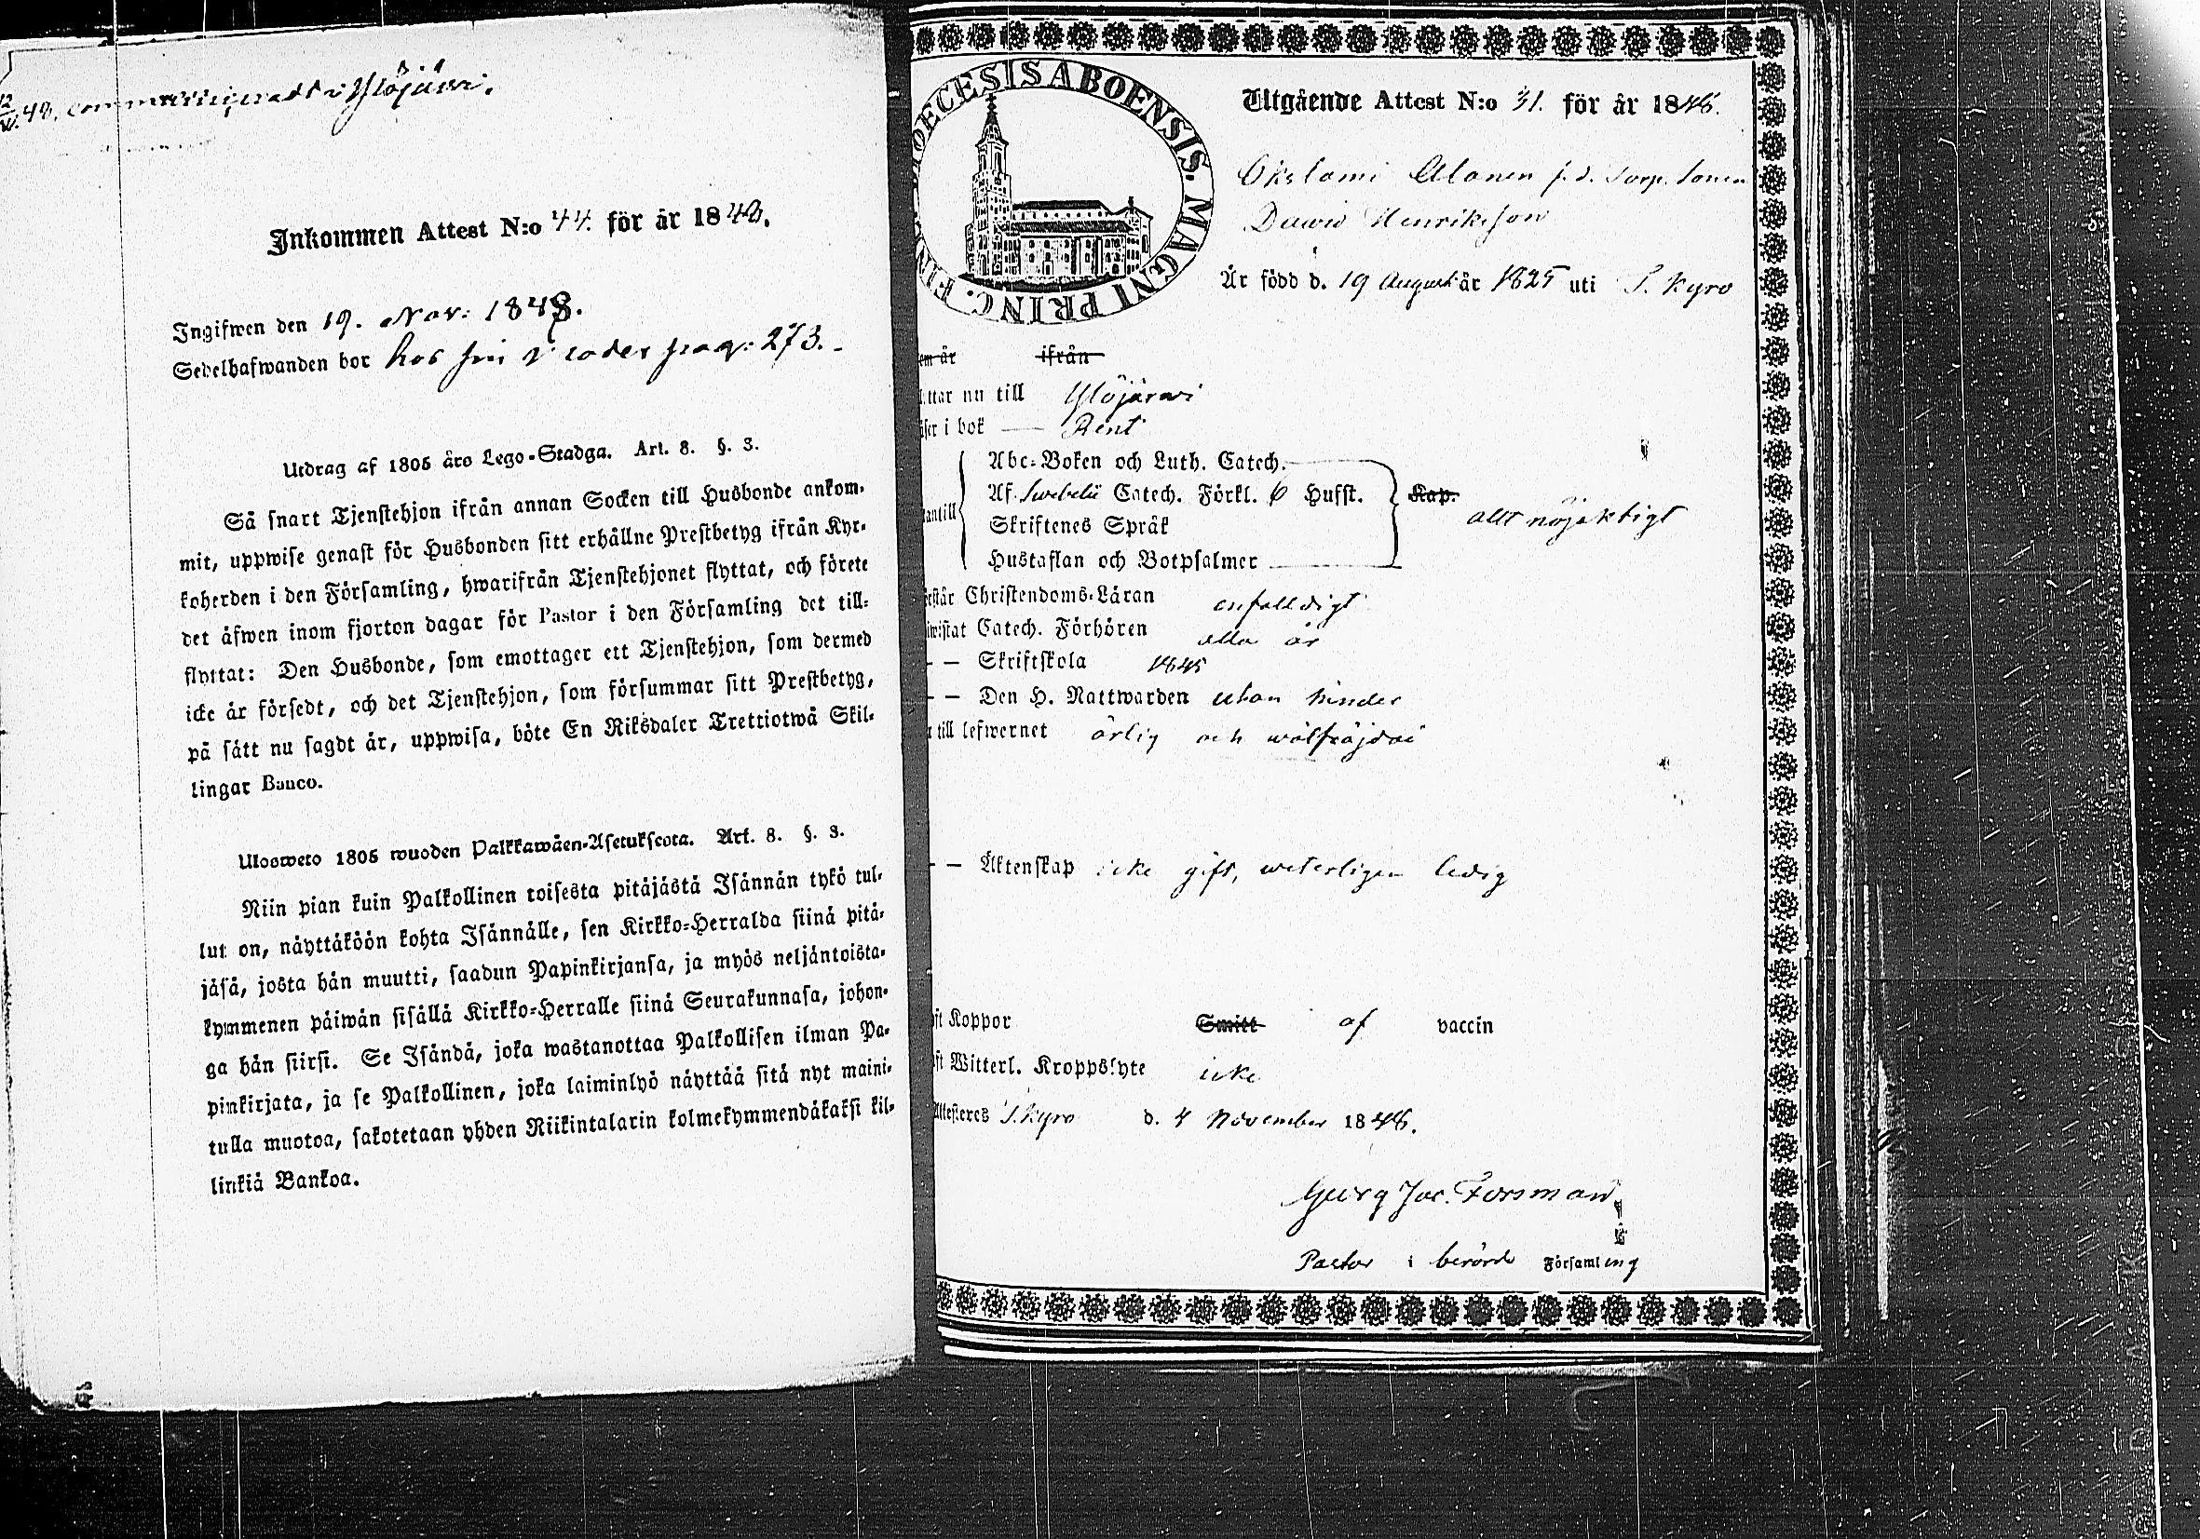 48. communicerat i Ylöjärvi.
Inkommen Attest N:o 44. för år 1848.
Ingifwen den 19. Nov: 1848.
Sedelhafwanden bor hos sin broder pag: 273.
Utdrag af 1805 års Lego-Stadga. Art. 8. §. 3.
Så snart Tjenstehjon ifrån annan Socken till Husbonde ankom-
mit, uppwise genast för Husbonden sitt erhållne Prestbetyg ifrån Kyr-
koherden i den Församling, hwarifrån Tjenstehjonet flyttat, och förete
det äfwen inom fjorton dagar för Pastor i den Församling det till-
flyttat: Den Husbonde, som emottager ett Tjenstehjon, som dermed
icke är försedt, och det Tjenstehjon, som försummar sitt Prestbetyg,
på sätt nu sagdt är, uppwisa, böte En Riksdaler Trettiotwå Skil-
lingar Banco.
Ulosweto 1805 wuoden Palkkawäen-Asetuksesta. Art. 8. §. 3.
Niin pian kuin Palkollinen toisesta pitäjästä Isännän tykö tul-
lut on, näyttäköön kohta Isännälle, sen Kirkko-Herralda siinä pitä-
jäsä, josta hän muutti, saadun Papinkirjansa, ja myös neljäntoista-
kymmenen päiwän sisällä Kirkko-Herralle siinä Seurakunnasa, johon-
ga hän siirsi. Se Isändä, joka wastanottaa Palkollisen ilman Pa-
pinkirjata, ja se Palkollinen, joka laiminlyö näyttää sitä nyt maini-
tulla muotoa, sakotetaan yhden Riikintalarin kolmekymmendäkaksi kil-
linkiä Bankoa.
DIOECESIS ABOENSIS. MAGNI PRINC. FIN
Utgående Attest N:o 31. för år 1848.
Alanen f. d. Torp. sonen
Dawid Henriksson
Är född d. 19 August år 1825 uti T. Kyro
em år ifrån
ttar nu till Ylöjärwi
äser i bok — Rent
Abc-Boken och Luth. Catech.
Af Swebelii Catech. Förkl. 6 Hufst. Kap.
antill Skriftenes Språk allt nöjaktigt
Hustaflan och Botpsalmer
rstår Christendoms-Läran enfalldigt
iwistat Catech. Förhören alla år
— — Skriftskola 1845
— — Den H. Nattwarden utan hinder
till lefwernet ärlig och wälfräjdad
— — Äktenskap icke gift, weterligen ledig
ft Koppor Smitt af vaccin
ft Witterl. Kroppslyte icke
Attesteres T. Kyro d. 4 November 1848.
Georg Jac. Forsman
Pastor i berörde Församling